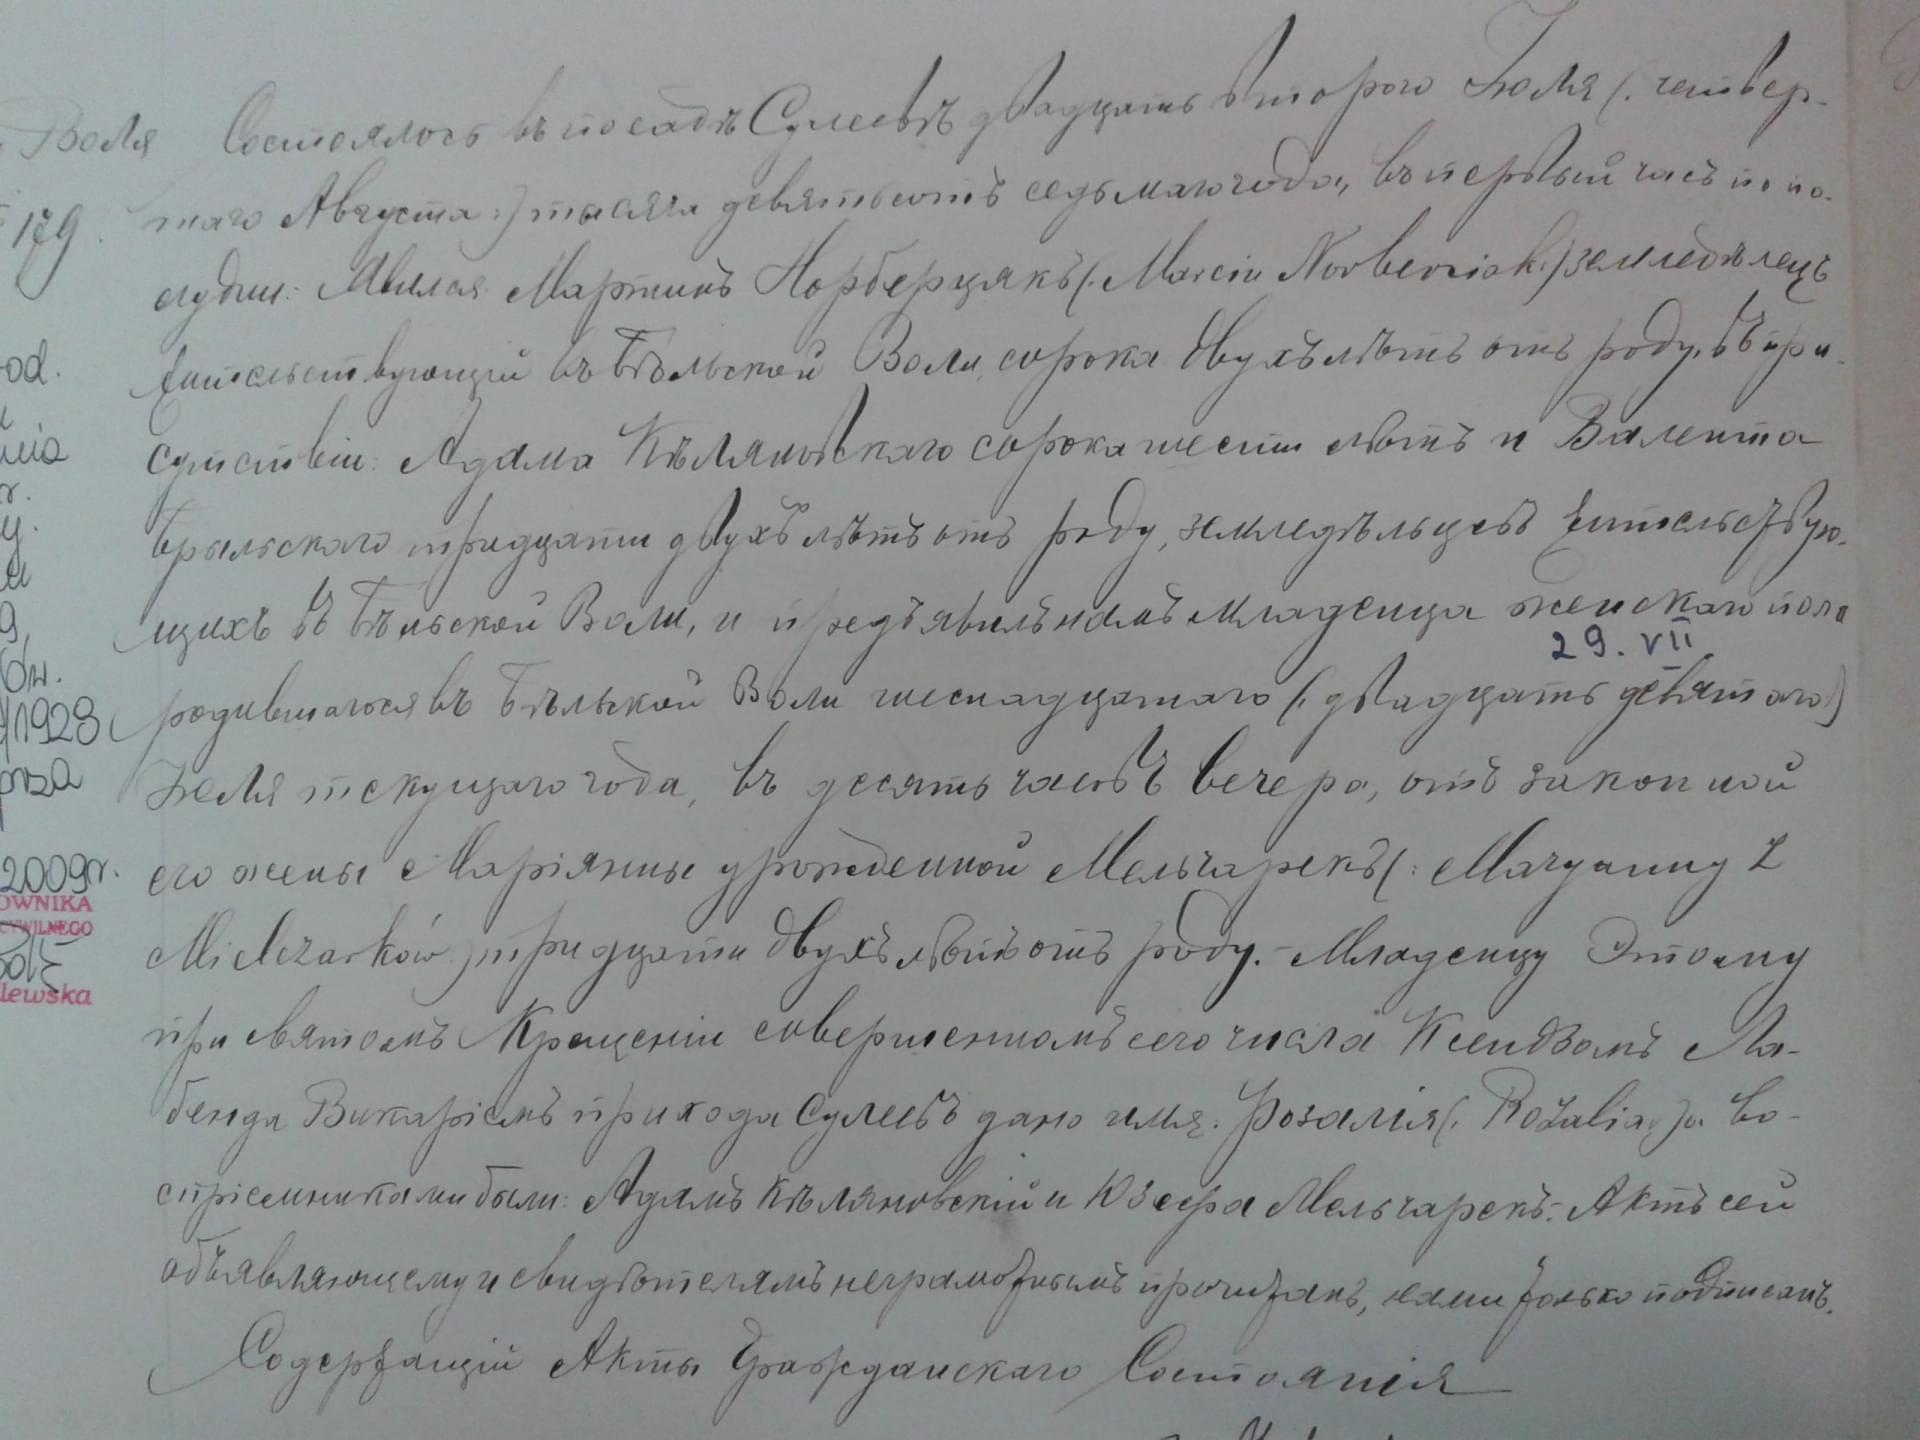 Воля
179.
Состоялось въ посадѣ Сулеевѣ двадцать второго Іюля (: четвер-
таго Августа :) тысяча девятьсотъ седьмаго года, въ первый часъ по по-
лудни: Явился Мартинъ Норберцякъ (: Marcin Norberciak :) земледѣлецъ
жительствующій въ Бѣльской Воли, сорока двухъ лѣтъ отъ роду, въ при-
сутствіи: Адама Кѣляновскаго сорока шести лѣтъ и Валента
Брыльскаго тридцати двухъ лѣтъ отъ роду, земледѣльцевъ жительствую-
щихъ въ Бѣльской Воли, и предъявилъ намъ младенца женскаго пола
29. VII
родившагося въ Бѣльской Воли шеснадцатаго (: двадцать девятаго :)
Іюля текущаго года, въ десять часовъ вечера, отъ законной
его жены Маріянны урожденной Мельчарекъ (: Maryanny z
Mielczarków :) тридцати двухъ лѣтъ отъ роду. - Младенцу этому
при святомъ Крещеніи совершенномъ сего числа Ксендзомъ Ла-
бенда Викаріемъ прихода Сулеевъ дано имя: Розалія (: Rozalia :) а во-
спріемниками были: Адамъ Кѣляновскій и Юзефа Мельчарекъ. - Актъ сей
объявляющему и свидѣтелямъ неграмотнымъ прочитанъ, нами только подписанъ.
Содержащій Акты Гражданскаго Состоянія
od.
r.
y.
9,
1928
2009r.
OWNIKA
CYWILNEGO
lewska